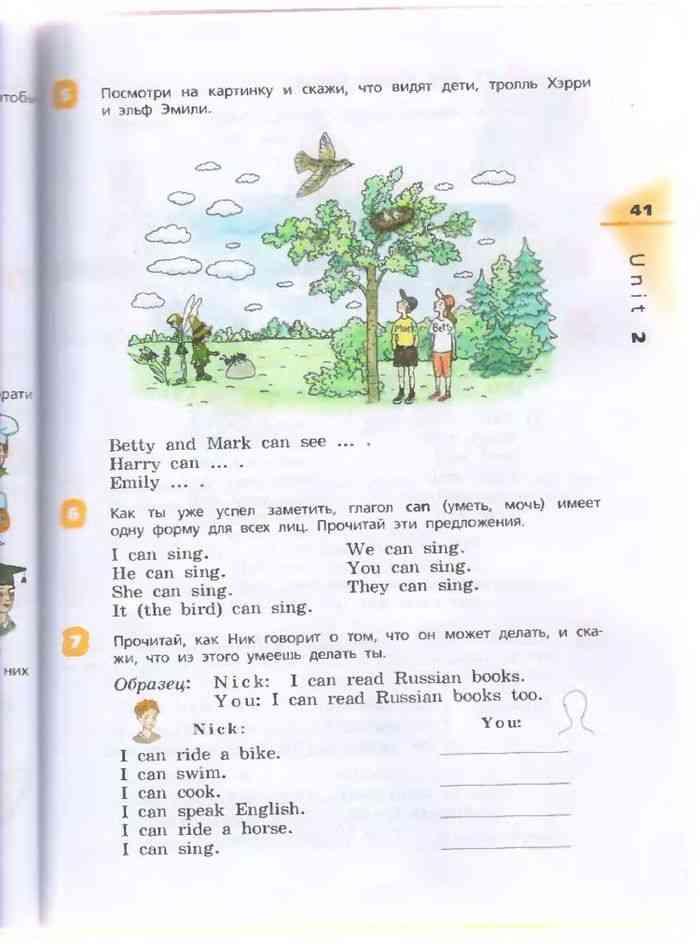 чтобы
5 Посмотри на картинку и скажи, что видят дети, тролль Хэрри
и эльф Эмили.
41
Unit 2
Mark
Betty
рати
Betty and Mark can see ... .
Harry can ... .
Emily ... .
6 Как ты уже успел заметить, глагол can (уметь, мочь) имеет
одну форму для всех лиц. Прочитай эти предложения.
I can sing.
He can sing.
She can sing.
It (the bird) can sing.
We can sing.
You can sing.
They can sing.
7 Прочитай, как Ник говорит о том, что он может делать, и ска-
жи, что из этого умеешь делать ты.
них
Образец: Nick: I can read Russian books.
You: I can read Russian books too.
Nick:
You:
I can ride a bike.
I can swim.
I can cook.
I can speak English.
I can ride a horse.
I can sing.